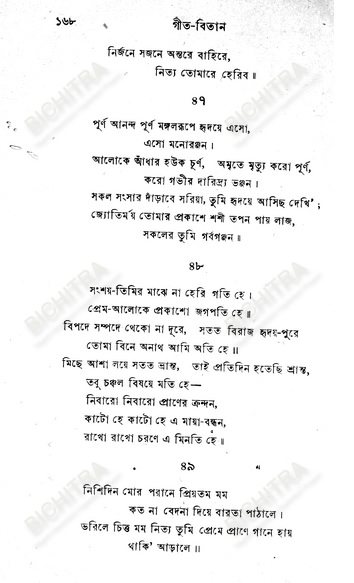 ১৬৮ গীত-বিতান
নির্জনে সজনে অন্তরে বাহিরে,
নিত্য তোমারে হেরিব॥
৪৭
পূর্ণ আনন্দ পূর্ণ মঙ্গলরূপে হৃদয়ে এসো,
এসো মনোরঞ্জন।
আলোকে আঁধার হউক চূর্ণ, অমৃতে মৃত্যু করো পূর্ণ,
করো গভীর দারিদ্র্য ভঞ্জন।
সকল সংসার দাঁড়াবে সরিয়া, তুমি হৃদয়ে আসিছ দেখি';
জ্যোতির্ময় তোমার প্রকাশে শশী তপন পায় লাজ,
সকলের তুমি গর্বগঞ্জন॥
৪৮
সংশয়-তিমির মাঝে না হেরি গতি হে।
প্রেম-আলোকে প্রকাশো জগপতি হে॥
বিপদে সম্পদে থেকো না দূরে, সতত বিরাজ হৃদয়-পুরে
তোমা বিনে অনাথ আমি অতি হে॥
মিছে আশা লয়ে সতত ভ্রান্ত, তাই প্রতিদিন হতেছি শ্রান্ত,
তবু চঞ্চল বিষয়ে মতি হে—
নিবারো নিবারো প্রাণের ক্রন্দন,
কাটো হে কাটো হে এ মায়া-বন্ধন,
রাখো রাখো চরণে এ মিনতি হে॥
৪৯
নিশিদিন মোর পরানে প্রিয়তম মম
কত না বেদনা দিয়ে বারতা পাঠালে।
ভরিলে চিত্ত মম নিত্য তুমি প্রেমে প্রাণে গানে হায়
থাকি' আড়ালে॥
BICHITRA
BICHITRA
BICHITRA
BICHITRA
BICHITRA
BICHITRA